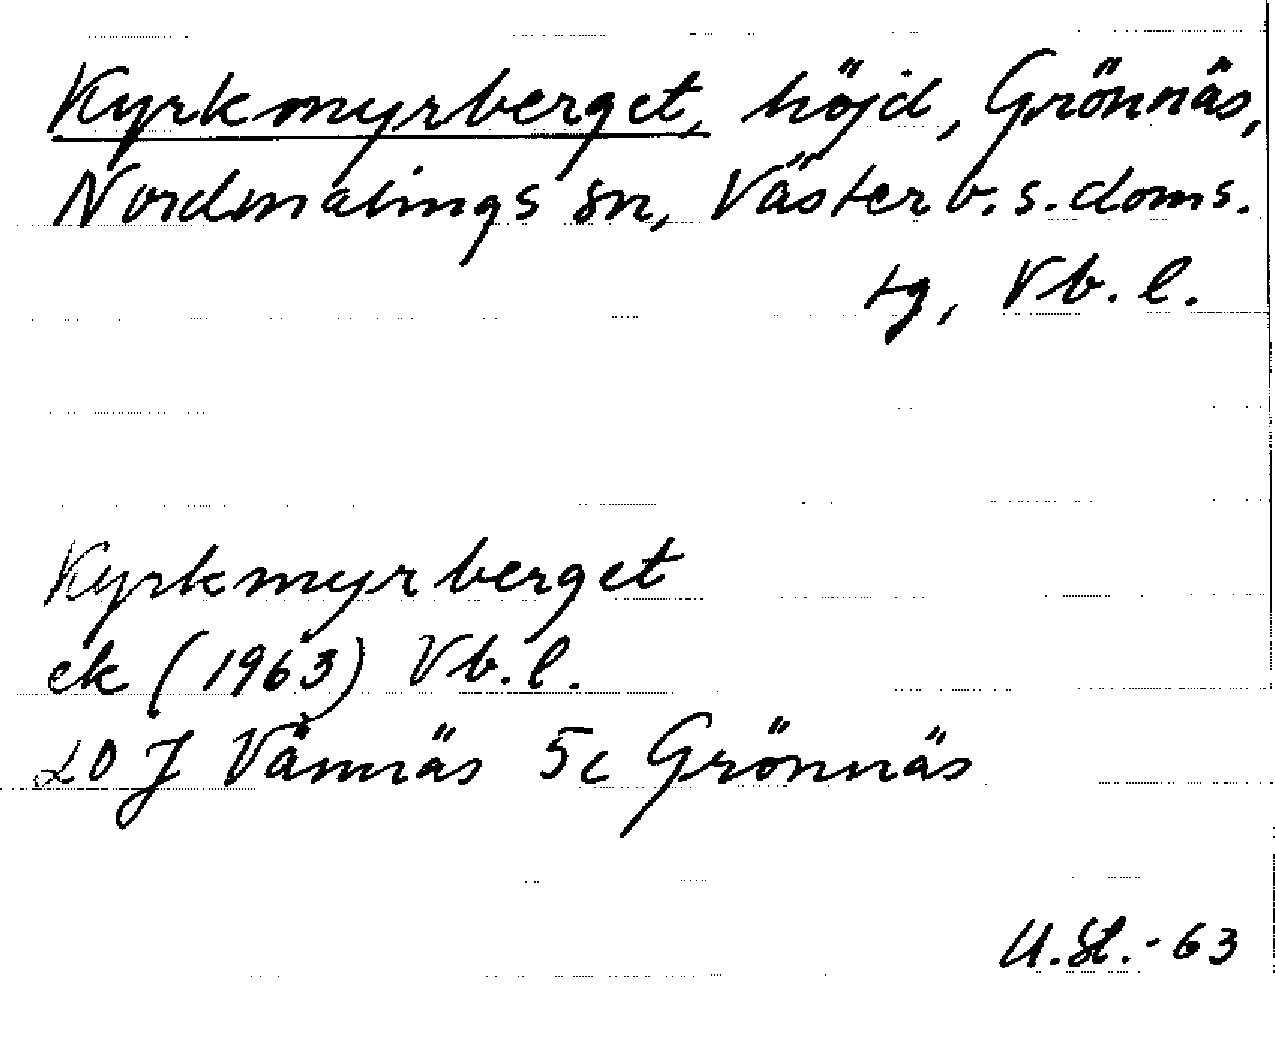 Kyrkmyrberget, höjd, Grönnäs,
Nordmalings sn, Västerb. s. doms.
tg, Vb. l.
Kyrkmyrberget
ek (1963) Vb. l.
20 J Vännäs 5c Grönnäs
U. St. - 63